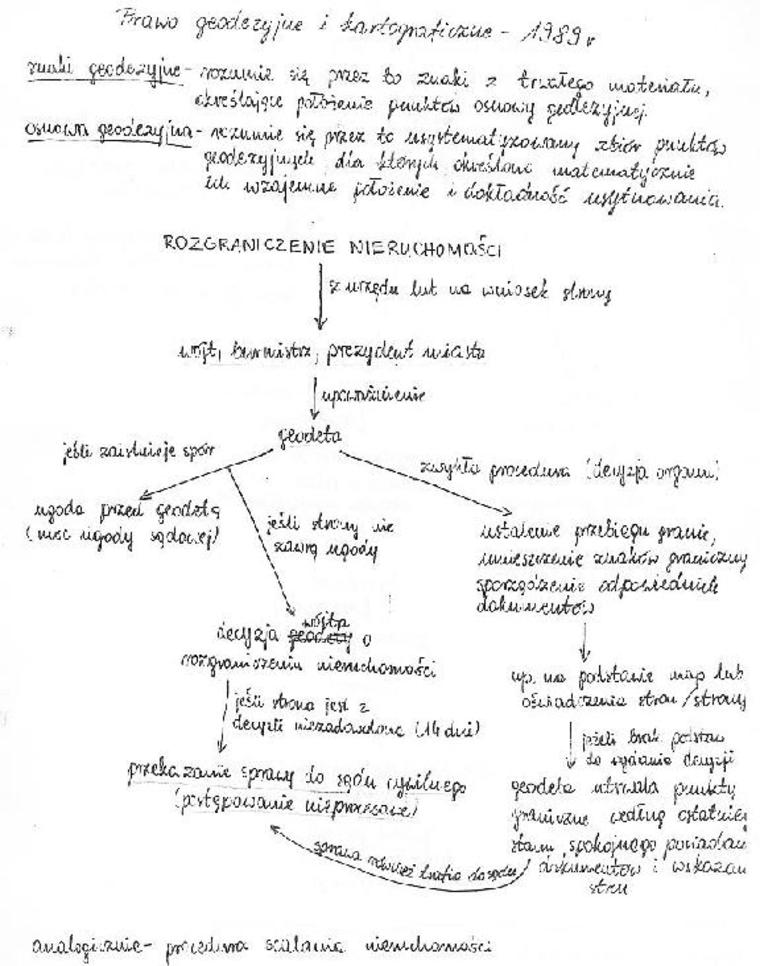 Prawo geodezyjne i kartograficzne - 1989 r
znaki geodezyjne - rozumie się przez to znaki z trwałego materiału,
określające położenie punktów osnowy geodezyjnej.
osnowa geodezyjna - rozumie się przez to usystematyzowany zbiór punktów
geodezyjnych dla których określono matematycznie
ich wzajemne położenie i dokładność usytuowania.
ROZGRANICZENIE NIERUCHOMOŚCI
z urzędu lub na wniosek strony
wójt, burmistrz, prezydent miasta
upoważnienie
geodeta
jeśli zaistnieje spór
zwykła procedura (decyzja organu)
ugoda przed geodetą
(moc ugody sądowej)
jeśli strony nie
zawrą ugody
ustalenie przebiegu granic,
umieszczenie znaków graniczny
sporządzenie odpowiednich
dokumentów
wójta
decyzja geodety o
rozgraniczeniu nieruchomości
np. na podstawie map lub
oświadczenia stron/strony
jeśli strona jest z
decyzji niezadowolona (14 dni)
jeżeli brak podstaw
do wydania decyzji
przekazanie sprawy do sądu cywilnego
(postępowanie nieprocesowe)
geodeta utrwala punkty
graniczne według ostatniej
stanu spokojnego posiadan
dokumentów i wskazań
stron
sprawa również trafia do sądu
analogicznie - procedura scalania nieruchomości